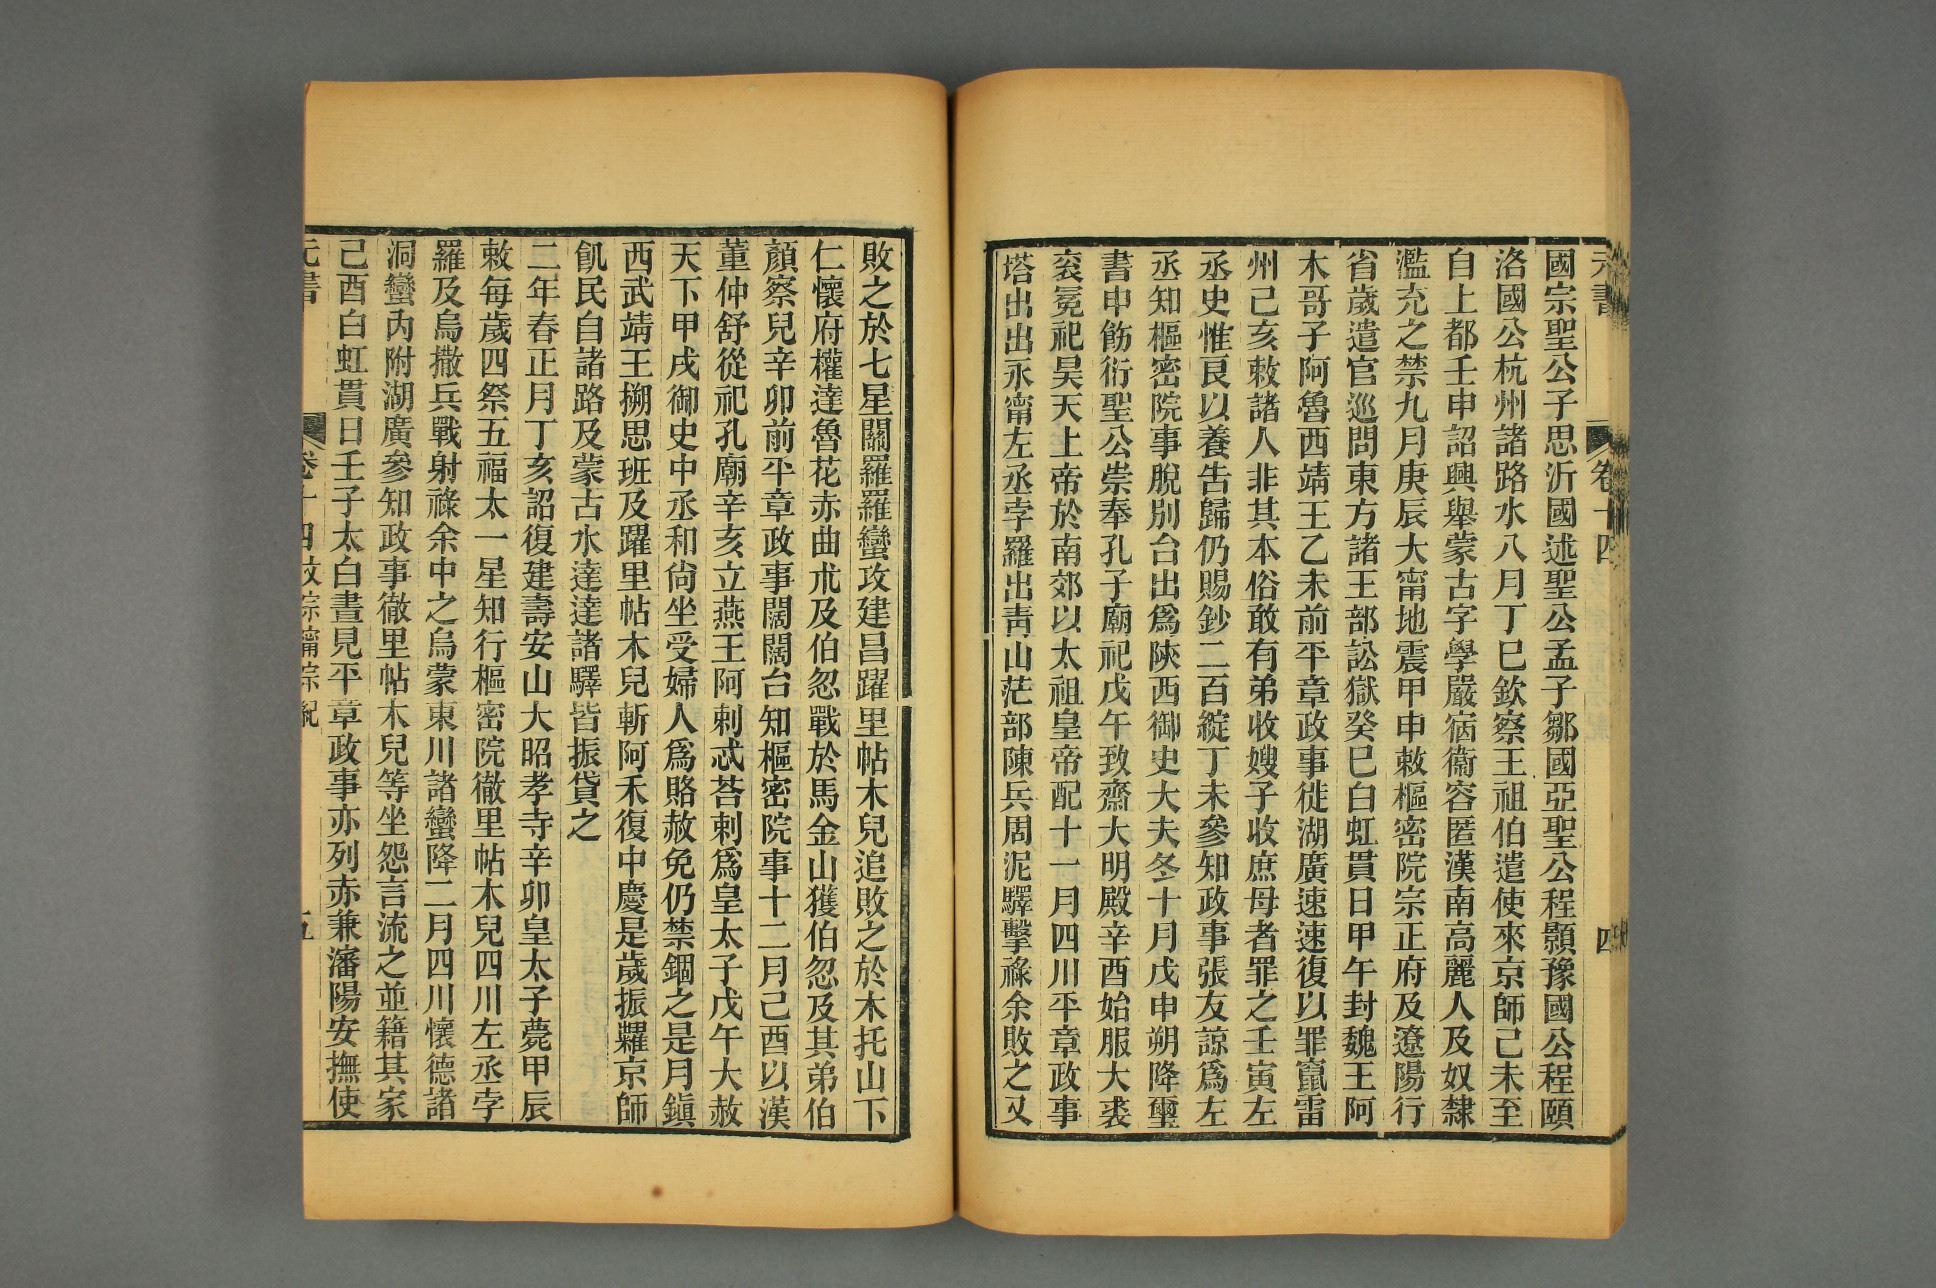 元書
卷十四
四
國宗聖公子思沂國述聖公孟子鄒國亞聖公程顥豫國公程頤
洛國公杭州諸路水八月丁巳欽察王祖伯遣使來京師己未至
自上都壬申詔興舉蒙古字學嚴宿衞容匿漢南高麗人及奴隸
濫充之禁九月庚辰大甯地震甲申敕樞密院宗正府及遼陽行
省歲遣官巡問東方諸王部訟獄癸巳白虹貫日甲午封魏王阿
木哥子阿魯西靖王乙未前平章政事徙湖廣速速復以罪竄雷
州己亥敕諸人非其本俗敢有弟收嫂子收庶母者罪之壬寅左
丞史惟良以養告歸仍賜鈔二百綻丁未參知政事張友諒爲左
丞知樞密院事脫別台出爲陝西御史大夫冬十月戊申朔降璽
書申飭衍聖公崇奉孔子廟祀戊午致齋大明殿辛酉始服大裘
袞冕祀昊天上帝於南郊以太祖皇帝配十一月四川平章政事
塔出出永甯左丞孛羅出靑山茫部陳兵周泥驛擊祿余敗之又
敗之於七星關羅羅蠻攻建昌躍里帖木兒追敗之於木托山下
仁懷府權達魯花赤曲朮及伯忽戰於馬金山獲伯忽及其弟伯
顏察兒辛卯前平章政事闊闊台知樞密院事十二月己酉以漢
董仲舒從祀孔廟辛亥立燕王阿剌忒荅剌爲皇太子戊午大赦
天下甲戌御史中丞和尙坐受婦人爲賂赦免仍禁錮之是月鎭
西武靖王搠思班及躍里帖木兒斬阿禾復中慶是歲振糶京師
飢民自諸路及蒙古水達達諸驛皆振貸之
二年春正月丁亥詔復建壽安山大昭孝寺辛卯皇太子薨甲辰
敕每歲四祭五福太一星知行樞密院徹里帖木兒四川左丞孛
羅及烏撒兵戰射祿余中之烏蒙東川諸蠻降二月四川懷德諸
洞蠻內附湖廣參知政事徹里帖木兒等坐怨言流之並籍其家
己酉白虹貫日壬子太白晝見平章政事亦列赤兼瀋陽安撫使
元書
卷十四
五